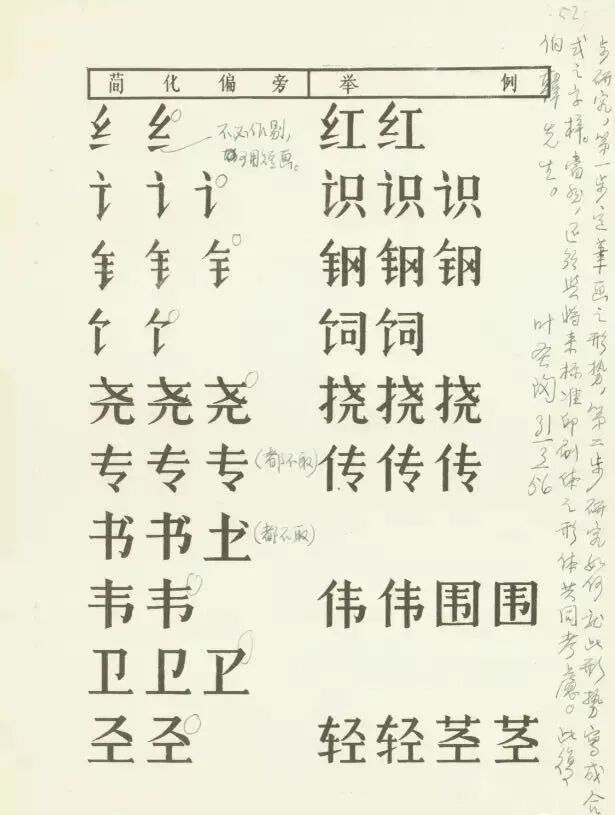 52
简化偏旁 举例
纟 纟 红 红
不必作剔,
讠 讠 讠 识 识 识
钅 钅 钅 钢 钢 钢
饣 饣 饲 饲
尧 尧 尧 挠 挠 挠
专 专 专 (都不取) 传 传 传
书 书 (都不取)
韦 韦 伟 伟 围 围
卫 卫
轻 轻 茎 茎
步研究,第一步定笔画之形势,第二步研究如何就此形势写成合
式之字样。当然,还须与将来标准印刷体之形体共同考虑。此复
伯韩先生。
叶圣陶 31/3 56